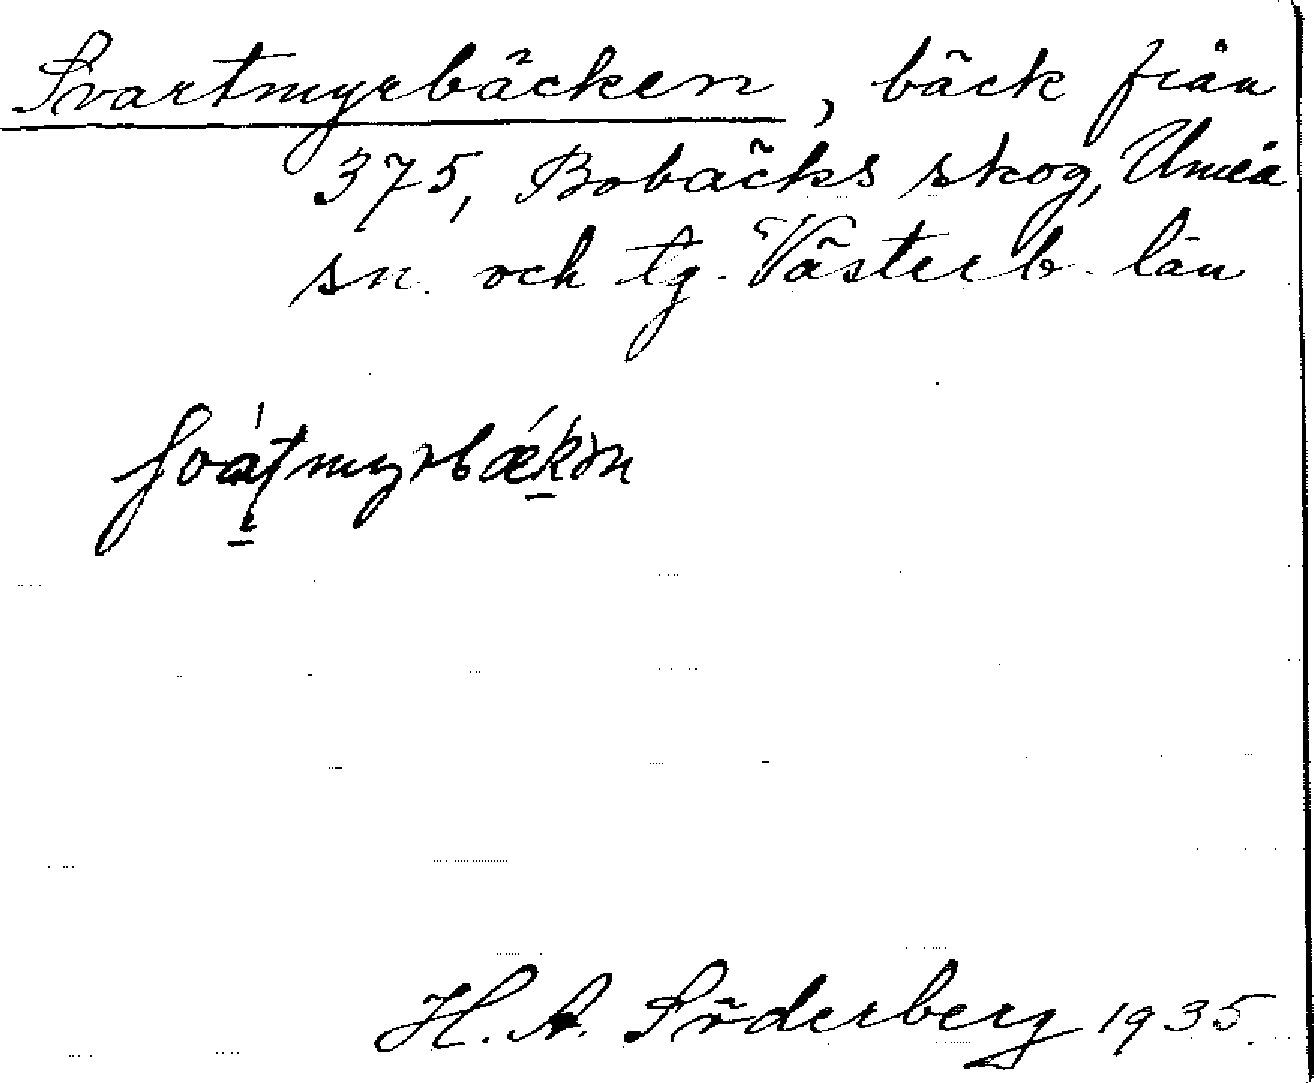 Svartmyrbäcken, bäck från
375, Bobäcks skog, Umeå
sn. och tg. Västerb. län
H. A. Söderberg 1935.